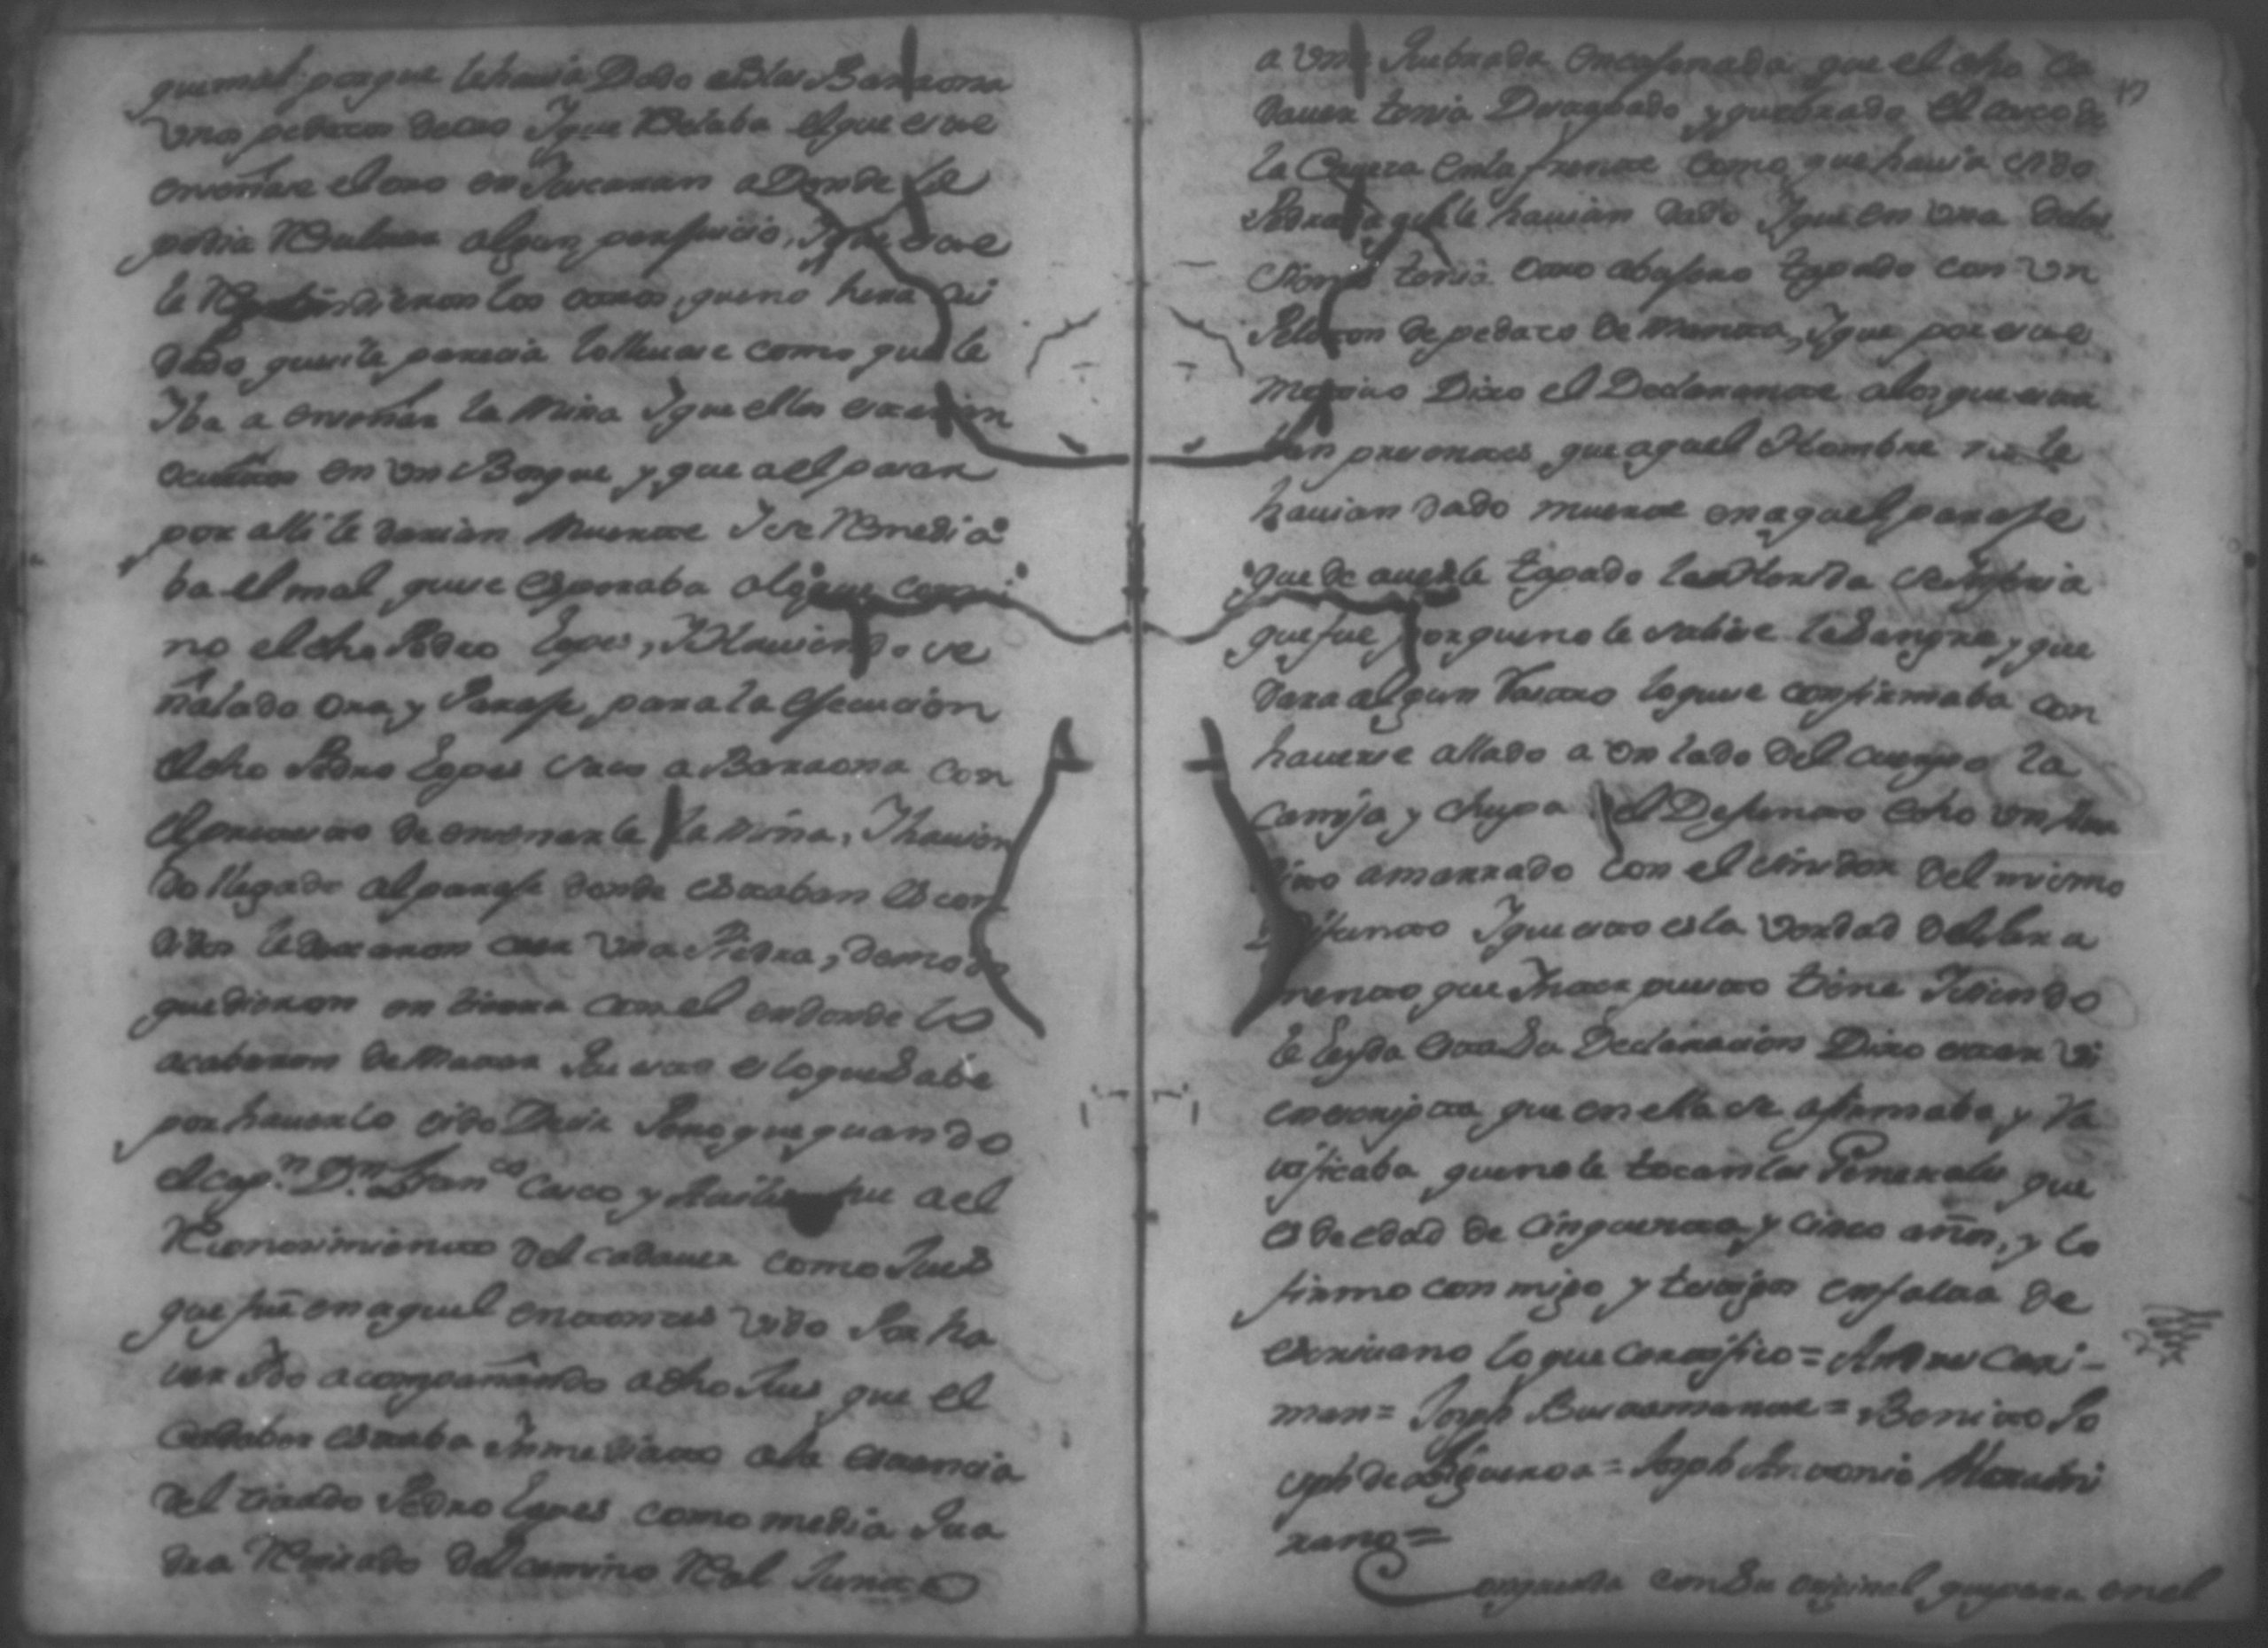 que mal porque le havia Dado el dho Baraona
unos pedazos de oro Y que Reselaba el que este
enseñase el oro en Juscaran a Donde le
podia Resultar algun perjuicio, Y que este
le Respondieron los otros, que no hera cui
dado, que si le parecia lo llevase como que le
Iba a enseñar la Mina Y que ellos estarian
ocultos en un Bosque y que a el pasar
por alli le darian Muerte Y se Remedia
ba el mal, que se esperaba
no el dho Pedro Lopes, Y Haviendo se
ñalado ora, y Paraje para la esecucion
el dho Pedro Lopes saco a Baraona con
el pretexto de ensenarle la Mina, Y havien
do llegado al paraje donde estaban escon
didos le dexaron caer una Piedra, de modo
que dieron en tierra con el en donde lo
acabaron de Matar Que esto es lo que Sabe
por haverlo oido Desir Pero que quando
el cap.n D.n Fran.co Casco y fue a el
Reconosimiento del cadaver como Jues
que fue en aquel entonces vido Por ha
ver ido acompañando a dho Jues que el
Cadaber estaba Inmediato a la estancia
del sitado Pedro Lopes como media Qua
dra Retirado del camino Real Junto
a una Quebrada encajonada que el dho Ca
daver tenia Desgarrado y quebrado el casco de
la Cavesa en la frente como que havia sido
Pedrada que le havian dado Y que en una de las
cienes tenia otro abujero tapado con un
Peloton de pedazo de Manta, Y que por este
Motivo Dixo el Declarante a los que esta
ban presentes que aquel Hombre no le
havian dado muerte en aquel paraje
que de averle tapado la Herida se Inferia
que fue porque no le saliese la Sangre, y que
dara algun Rastro lo que se confirmaba con
haverse allado a un lado del cuerpo la
camisa y chupa del Defunto echo un
amarrado con el señidor del mismo
Difunto Y que esto es la verdad del Jura
mento que Inter puesto tiene Y siendo
le leyda esta Su Declaracion Dixo estar vi
en escripta que en ella se afirmaba, y Ra
tificaba que no le tocan las Generales que
es de edad de cinquenta y cinco años, y lo
firmo con migo y testigos en falta de
escrivano lo que certifico = Andres Cari-
man = Joseph Bustamante = Benito Jo
seph de Figueroa = Joseph Antonio
rano =
Concuerda con Su original que para en el